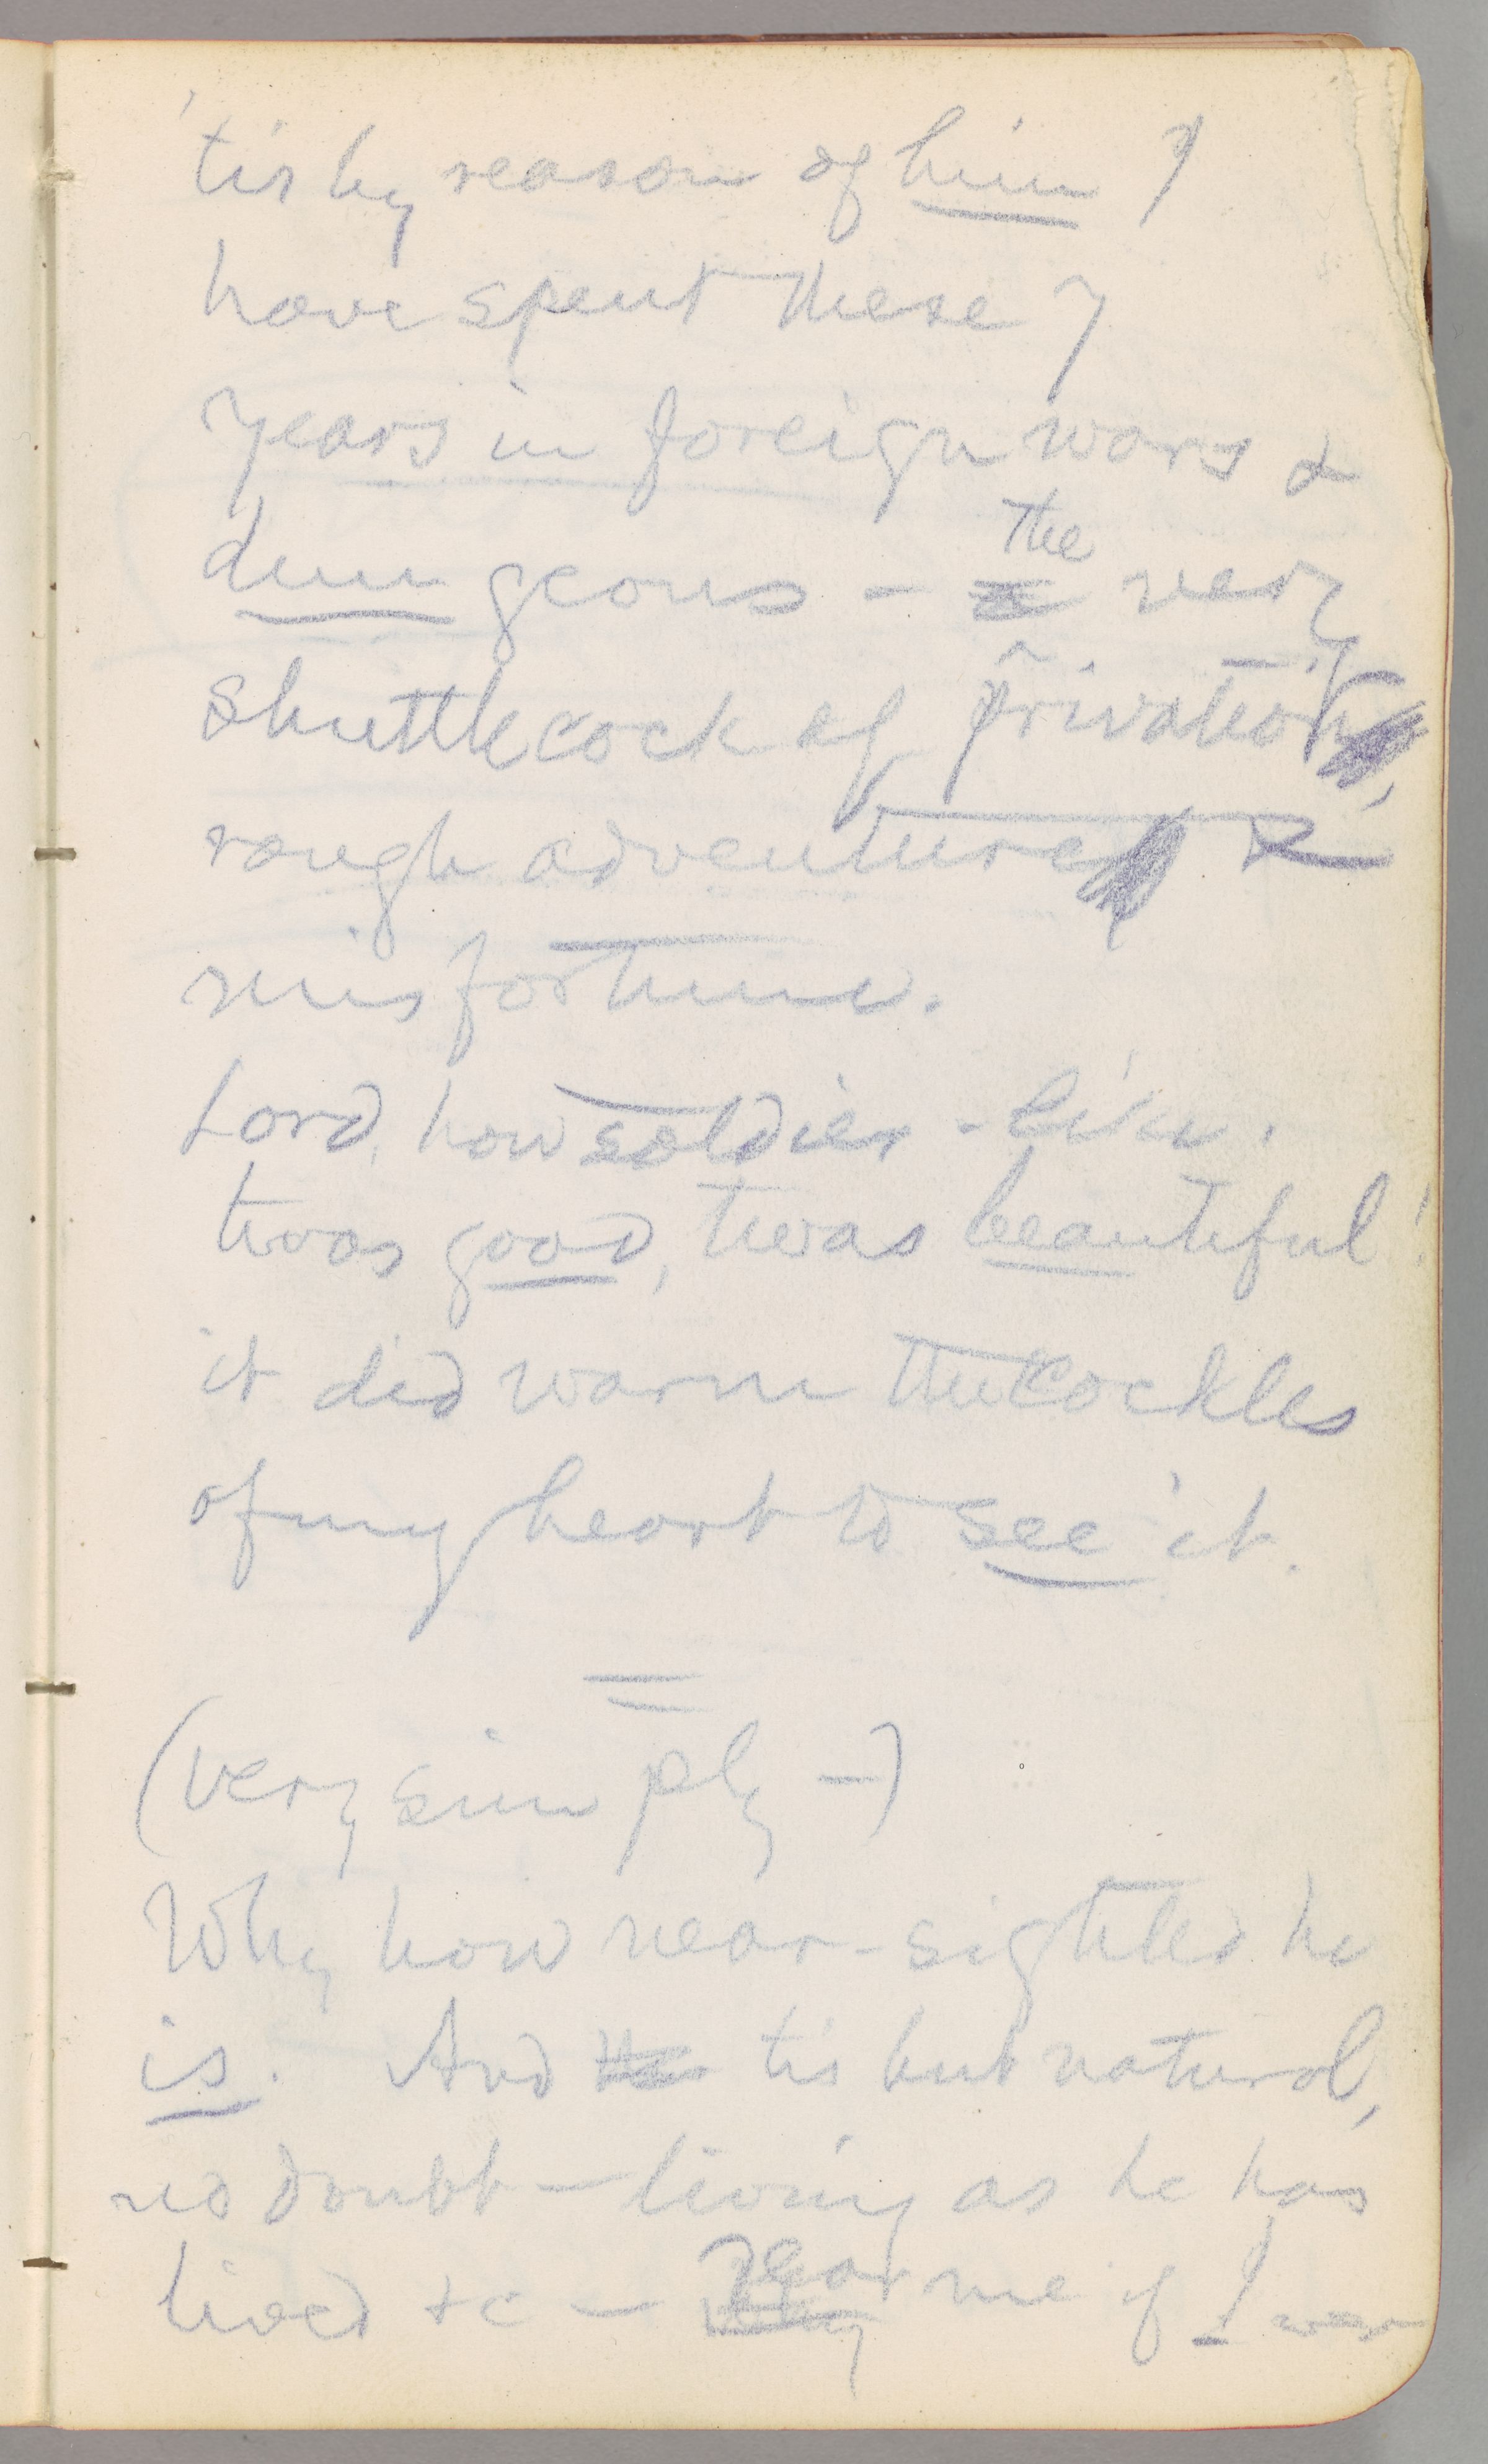 'tis by reason of him I
have spent these 7
years in foreign wars &
dungeons – the very
shuttlecock of privation,
rough adventure &
misfortune.
Lord, how soldier-like.
twas good, twas beautiful!
it did warm the cockles
of my heart to see it.
(very simply —)
Why how near-sighted he
is. And tis but natural,
no doubt — living as he has
lived &c — dear me if I were